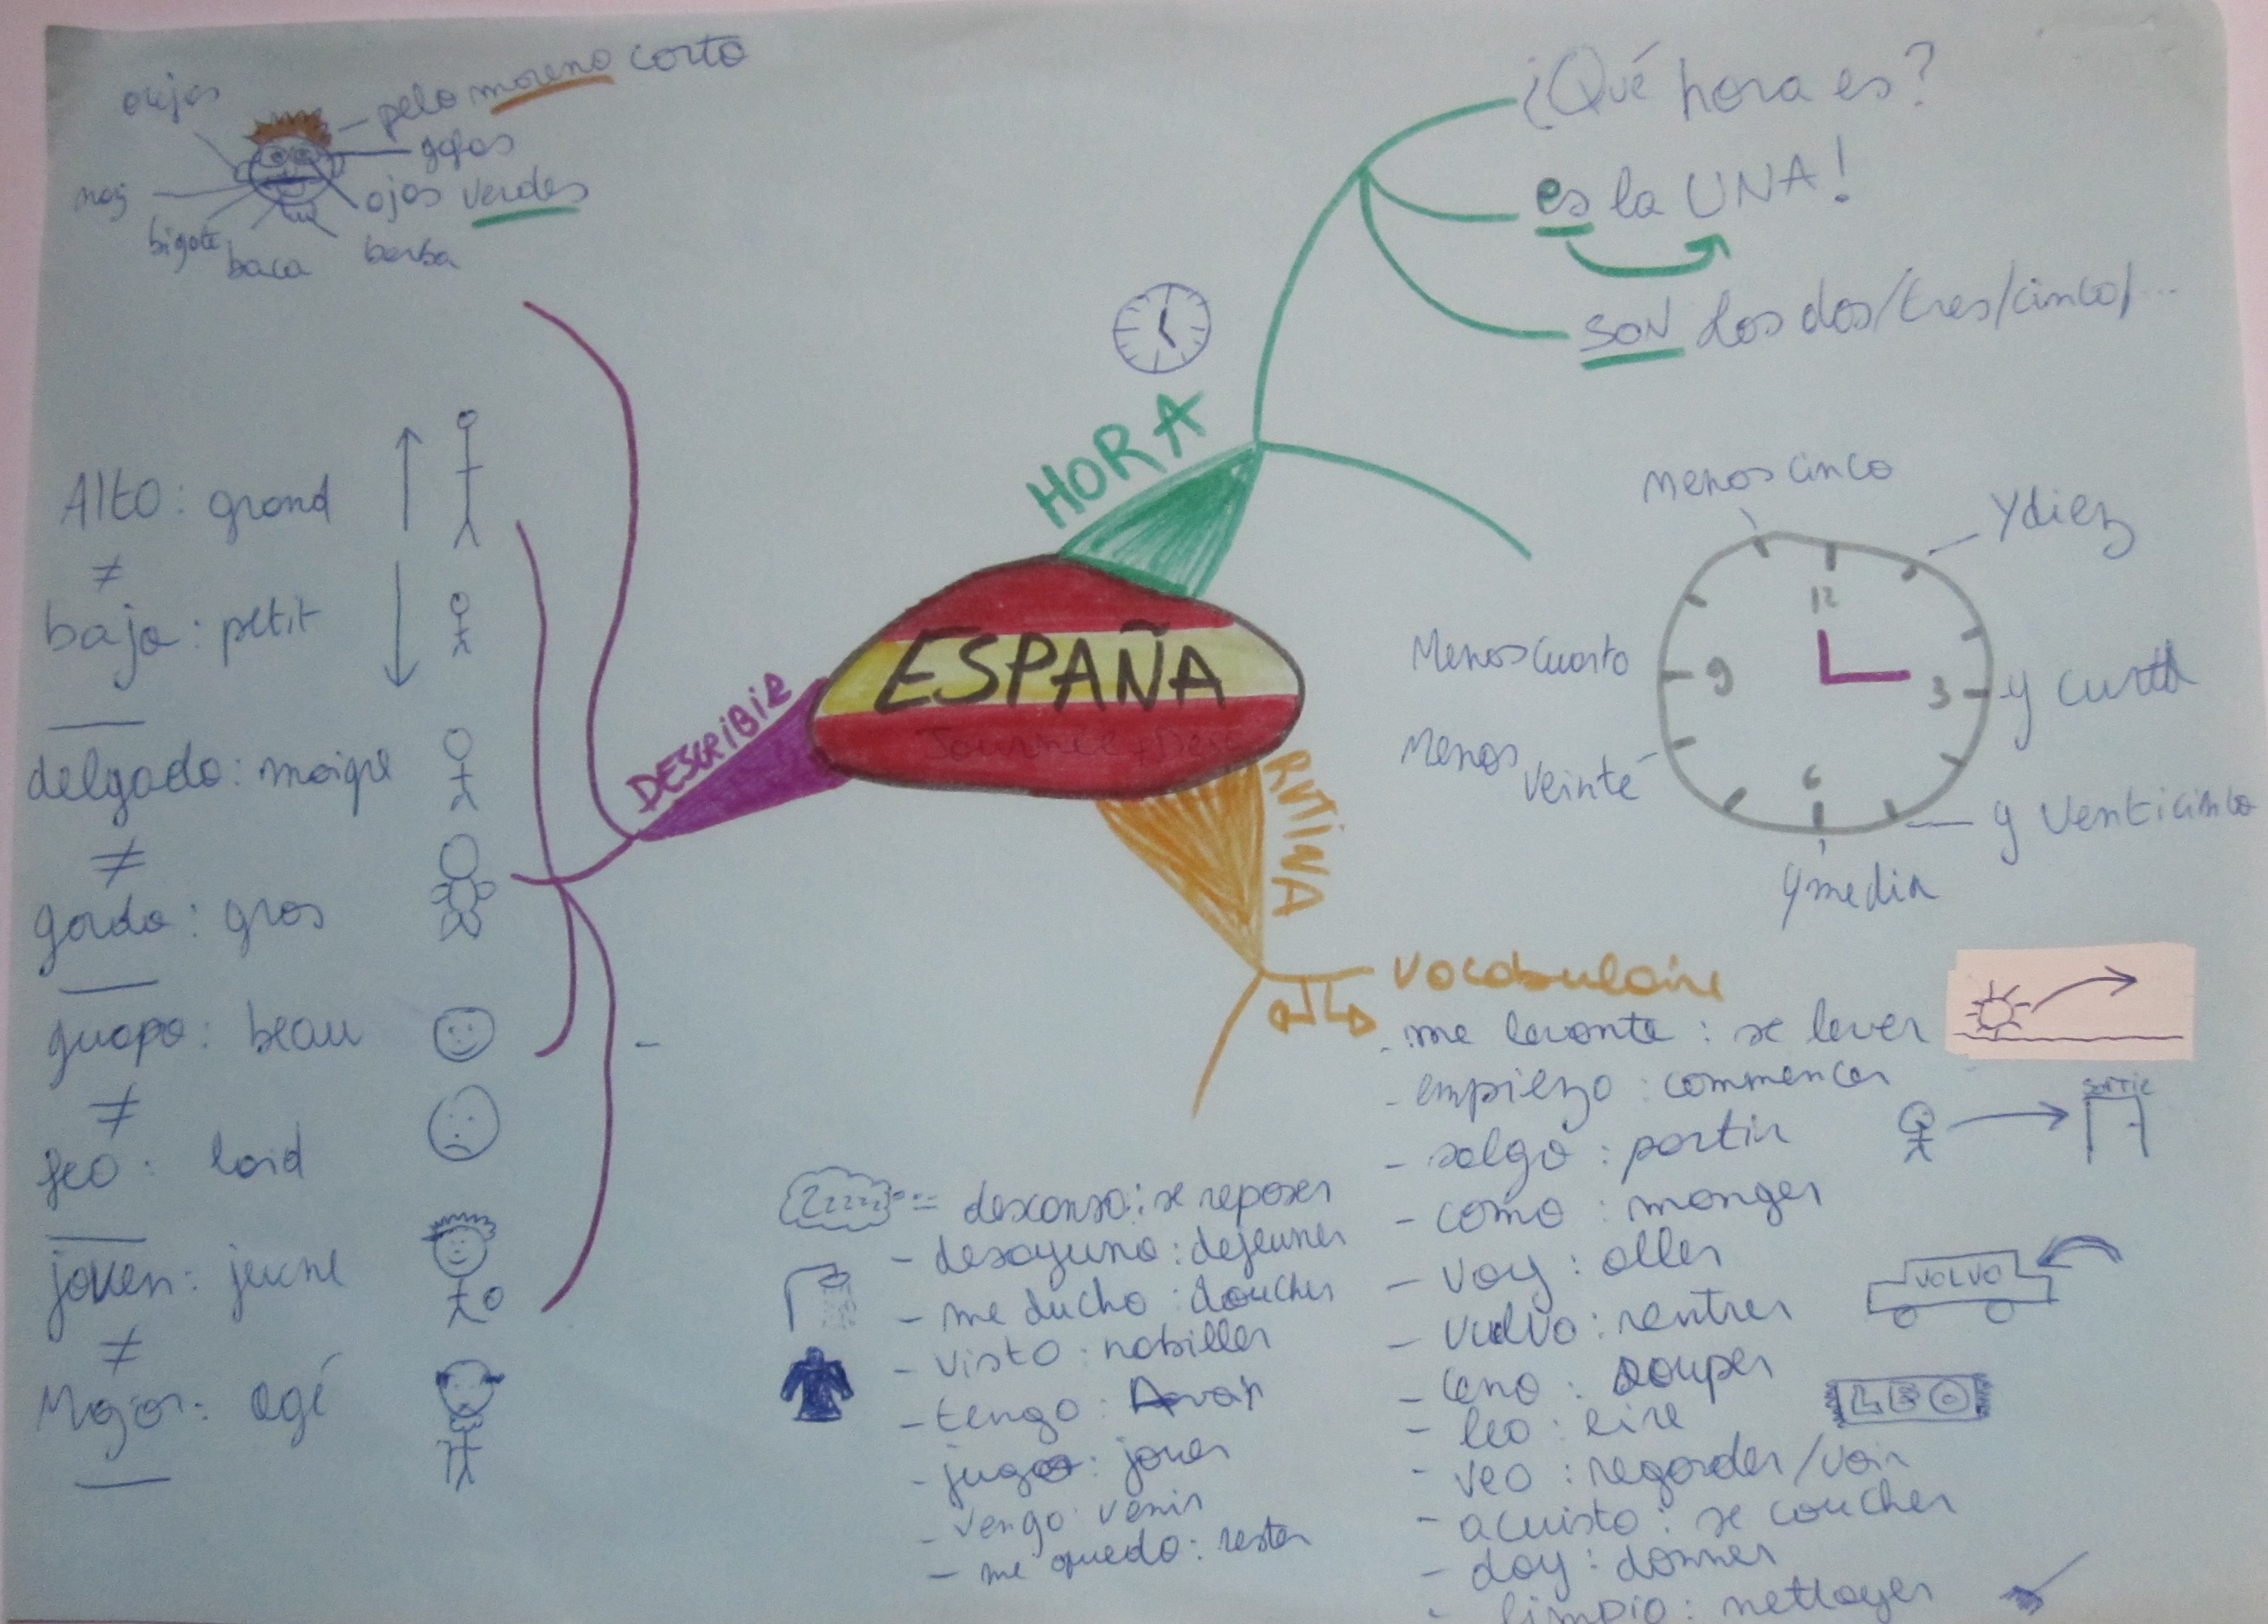 pelo moreno corto
gafas
ojos verdes
bigote
baca
barba
Alto: grand
≠
bajo: petit
delgado: maigre
≠
gordo: gros
guapo: beau
≠
feo: laid
joven: jeune
≠
Major: agé
DESCRIBIR
ESPAÑA
HORA
¿Qué hora es?
es la UNA!
SON los dos/tres/cinco/...
Menos cinco
Y diez
12
Menos cuarto
9
3
Menos
veinte
6
y venticinco
y media
RUTINA
vocabulaire
- me levanto: se lever
- empiezo: commencer
- salgo: partir
SORTIE
- como: manger
- voy: aller
VOLVO
- vuelvo: rentrer
- ceno: souper
- leo: lire
LEO
- veo: regarder/voir
- acuisto: se coucher
- doy: donner
- limpio: nettoyer
Zzzzz
descanso: se reposer
- desayuno: dejeuner
- me ducho: doucher
- visto: habiller
- tengo: Avoir
- juego: jouer
- vengo: venir
- me quedo: rester